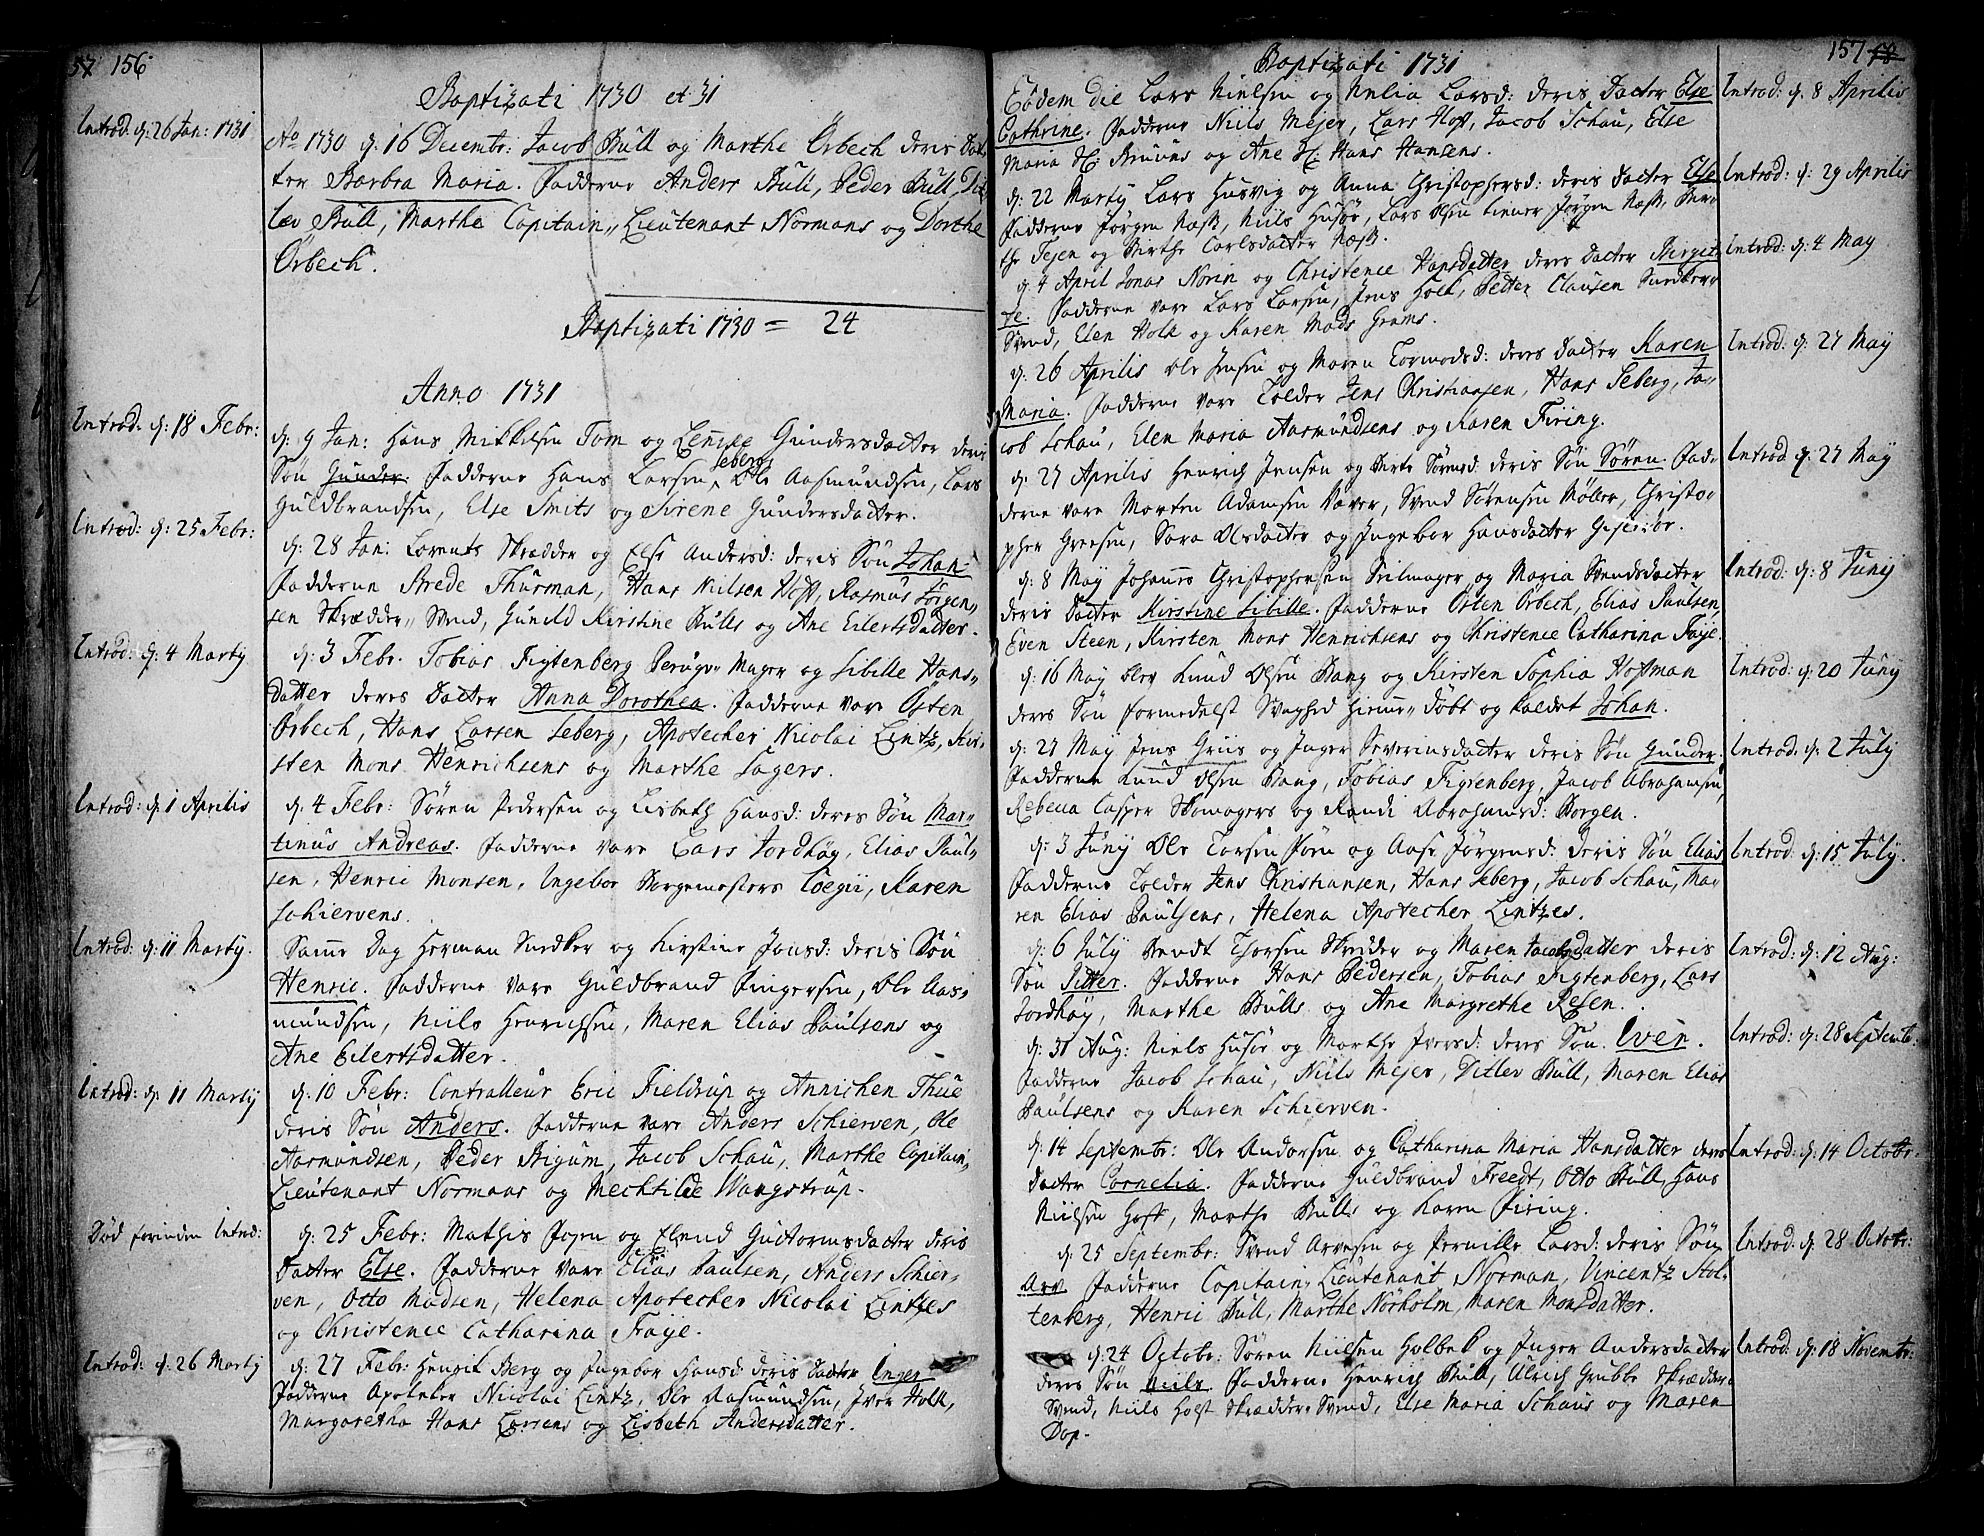 57 156
Baptizati 1730 et 31
Introd: d: 26 Jan: 1731
Ao 1730 d: 16 Decembr: Jacob Bull og Marthe Örbech deris Dat-
ter Barbra Maria. Fadderne Anders Bull, Peder Bull, Dit-
lev Bull, Marthe Capitain,, Lieutenant Normans og Dorthe
Örbech.
Baptizati 1730 = 24
Anno 1731
Introd: d: 18 Febr:
d: 9 Jan: Hans Mikkelsen Tom og Lenike Gundersdatter deris
Søn Gunder. Fadderne Hans Larsen Seberg, Ole Aasmundsen, Lars
Guldbrandsen, Else Smits og Sirene Gundersdatter.
Introd: d: 25 Febr:
d: 28 Jan: Lorents Skrædder og Else Andersd: deris Søn Johan
Fadderne Strede Thurman, Hans Nielsen Hoft, Rasmus Jørgen-
sen Skrædder,, Svend, Gunild Kirstine Bulls og Ane Eilertsdatter.
Introd: d: 4 Martij
d: 3 Febr. Tobias Figtenberg Peruqve Mager og Sibille Hans-
datter deres Datter Anna Dorothea. Fadderne vare Østen
Örbech, Hans Larsen Seberg, Apotecher Nicolai Lintz, Kir-
sten Mons Henrichsens og Marthe Sagers.
Introd: d: 1 Aprilis
d: 4 Febr: Søren Pedersen og Lisbeth Hansd: deres Søn Mar-
tinus Andreas. Fadderne vare Lars Jordhøy, Elias Paul-
sen, Henric Monsen, Ingebor Borgemesters Coegii, Karen
Schiervens.
Introd: d: 11 Martij.
Samme Dag Herman Snedker og Kirstine Jonsd: deris Søn
Henric. Fadderne vare Guldbrand Ringersen, Ole Aas-
mundsen, Niels Henrichsen, Maren Elias Paulsens og
Ane Eilertsdatter.
Introd: d: 11 Martij
d: 10 Febr: Contralleur Eric Fieldrup og Annichen Thue
deris Søn Anders. Fadderne vare Anders Schierven, Ole
Aasmundsen, Peder Brigum, Jacob Schau, Marthe Capitain,,
Lieutenant Normans og Mechtilde Wangstrup.
Død forinden Introd:
d: 25 Febr: Mathis og Elend Guttormsdatter deris
Datter Else. Fadderne vare Elias Paulsen, Anders Schier-
ven, Otto Madsen, Helena Apotecher Nicolai Lintzes
og Christence Catharina Fraye.
Introd: d: 26 Martij
d: 27 Febr: Henrik Berg og Ingebor Hansd: deris Datter Inger
Fadderne Apoteker Nicolai Lintz, Ole Aasmundsen, Iver Holk,
Margaretha Hans Larsens og Lisbeth Andersdatter.
157 58
Baptizati 1731
Introd: d: 8 Aprilis
Eodem die Lars Nielsen og Nelia Larsd: deris Datter Else
Cathrine. Fadderne Niels Mejer, Lars Hoft, Jacob Schau, Else
Maria H: Bruuns og Ane H: Hans Hansens.
Introd: d: 29 Aprilis
d: 22 Martij Lars Husvig og Anna Christophersd: deris Datter Else
Fadderne Jørgen Næss, Niels Husør, Lars Olsen tiener Jørgen Næss, Ber-
the Fejen og Birthe Carlsdatter Næss.
Introd: d: 4 May
d: 4 April Jonas Norin og Christence Hansdatter deres Datter Birgit-
te. Fadderne vare Lars Larsen, Jens Holk, Petter Clausen Snedker
Svend, Elen Holk og Karen Mads Grams.
Introd: d: 27 Maij
d: 26 Aprilis Ole Jensen og Maren Tormodsd: deres Datter Karen
Maria. Fadderne vare Tolder Jens Christiansen, Hans Seberg, Ja-
cob Schau, Elen Maria Aasmundsens og Karen Firing.
Introd d: 27 Maij
d: 27 Aprilis Henrich Jensen og Birte Sørensd: deris Søn Søren. Fad-
derne vare Morten Adamsen Væver, Svend Sørensen Møller, Christo-
pher Greesen, Sara Olsdatter og Ingebor Hansdatter
Introd: d: 8 Junij
d: 8 Maij Johannes Christophersen Seilmager og Maria Svendsdatter
deris Datter Kirstine Sibille. Fadderne Østen Örbech, Elias Paulsen,
Even Steen, Kirsten Mons Henrichsens og Christence Catharina Fraye.
Introd: d: 20 Junij
d: 16 Maij blev Knud Olsen Bang og Kirsten Sophia Hofman
deres Søn formedelst Svaghed hieme,, døbt og kaldet Johan.
Introd: d: 2 Julij
d: 27 Maij Jens Griis og Inger Severinsdatter deris Søn Gunder.
Fadderne Knud Olsen Bang, Tobias Figtenberg, Jacob Abrahamsen,
Rebecca Casper Skomagers og Randi Abrahamsd: Borgen.
Introd: d: 15 Julij.
d: 3 Junij Ole Torsen og Aase Jørgensd: deris Søn Elias
Fadderne Tolder Jens Christiansen, Hans Seberg, Jacob Schau, Ma-
ren Elias Paulsens, Helena Apotecher Lintzes.
Introd: d: 12 Aug:
d: 6 Julij Bendt Thorsen Skredder og Maren Jacobsdatter deris
Søn Ditter. Fadderne Hans Pedersen, Tobias Figtenberg, Lars
Jordhøy, Marthe Bulls og Ane Margrethe Resen.
Introd: d: 28 Septembr:
d: 31 Aug: Niels Husør og Marthe Iversd: deres Søn Iver.
Fadderne Jacob Schau, Niels Mejer, Ditlev Bull, Maren Elias
Paulsens og Karen Schierven.
Introd: d: 14 Octobr:
d: 14 Septembr: Ole Andersen og Catharina Maria Hansdatter deres
Datter Cornelia. Fadderne Guldbrand Freedt, Otto Bull, Hans
Nielsen Hoft, Marthe Bulls og Karen Firing.
Introd: d: 28 Octobr:
d: 25 Septembr: Svend Arvesen og Pernille Larsd: deris Søn
Arv. Fadderne Capitain,, Lieutenant Norman, Vincentz Stol-
tenberg, Henric Bull, Marthe Nørholm, Maren Monsdatter.
Introd: d: 18 Novembr:
d: 24 Octobr: Søren Nielsen Holbek og Inger Andersdatter
deres Søn Niels. Fadderne Henrich Bull, Ulrich Grubbe Skrædder
Svend, Niels Holst Skrædder Svend, Else Maria Schaus og Maren
Dop.